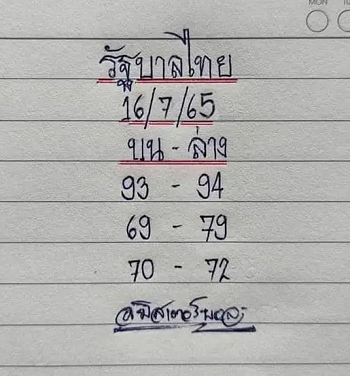 MON
รัฐบาลไทย
16/7/65
บน - ล่าง
93 - 94
69 - 79
70 - 72